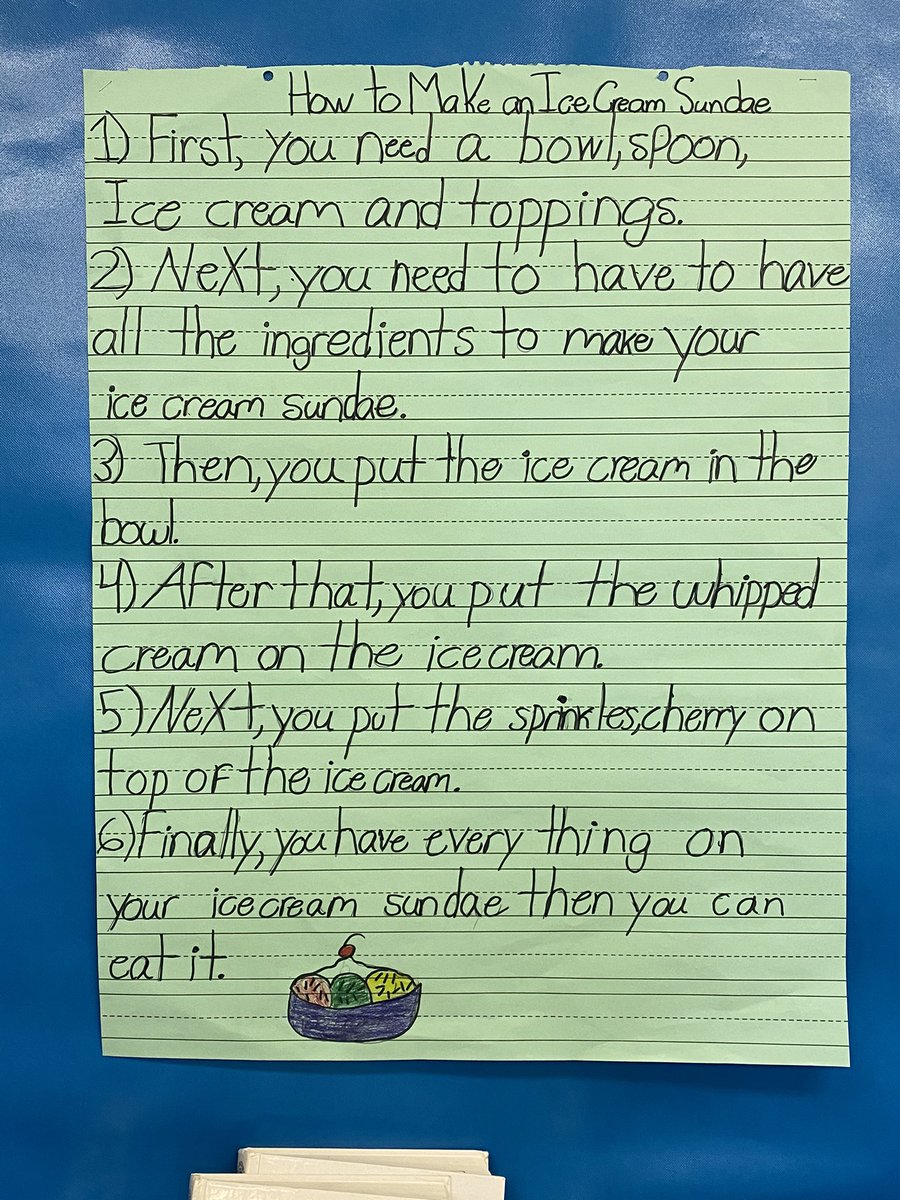 How to Make an Ice Cream Sundae
1) First, you need a bowl, spoon,
Ice cream and toppings.
2) Next, you need to have to have
all the ingredients to make your
ice cream sundae.
3) Then, you put the ice cream in the
bowl.
4) After that, you put the whipped
cream on the icecream.
5) Next, you put the sprinkles, cherry on
top of the ice cream.
6) Finally, you have every thing on
your icecream sundae then you can
eat it.